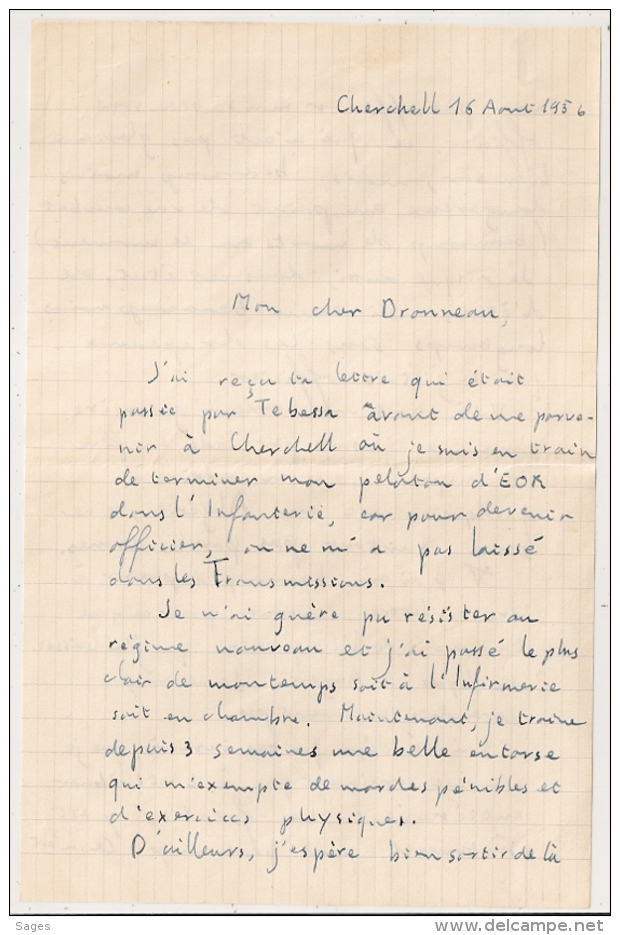 Cherchell 16 Aout 1956
Mon cher Dronneau,
J'ai reçu ta lettre qui était
passée par Tebessa avant de me parve-
nir à Cherchell où je suis en train
de terminer mon peloton d'EOR
dans l'Infanterie, car pour devenir
officier, on ne m'a pas laissé
dans les Transmissions.
Je n'ai guère pu résister au
régime nouveau et j'ai passé le plus
clair de mon temps soit à l'Infirmerie
soit en chambre. Maintenant, je traine
depuis 3 semaines une belle entorse
qui m'exempte de marches pénibles et
d'exercices physiques.
D'ailleurs, j'espère bien sortir de là
Sages
delcampe.net